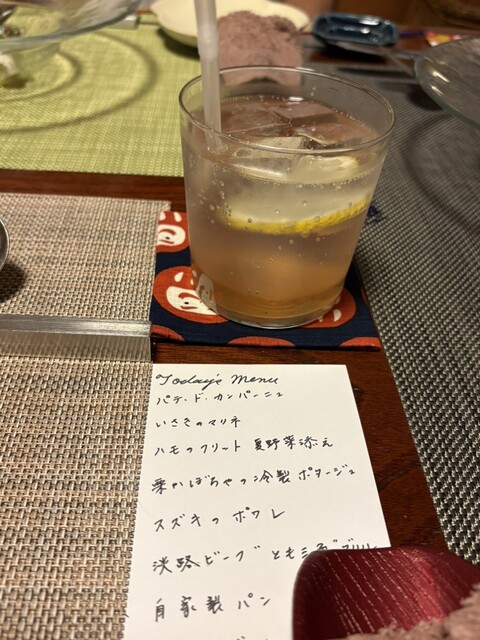 Today's Menu
パテ・ド・カンパーニュ
いさきのマリネ
ハモのフリット 夏野菜添え
栗かぼちゃの冷製ポタージュ
スズキのポワレ
淡路ビーフ ともさんかく
自家製パン